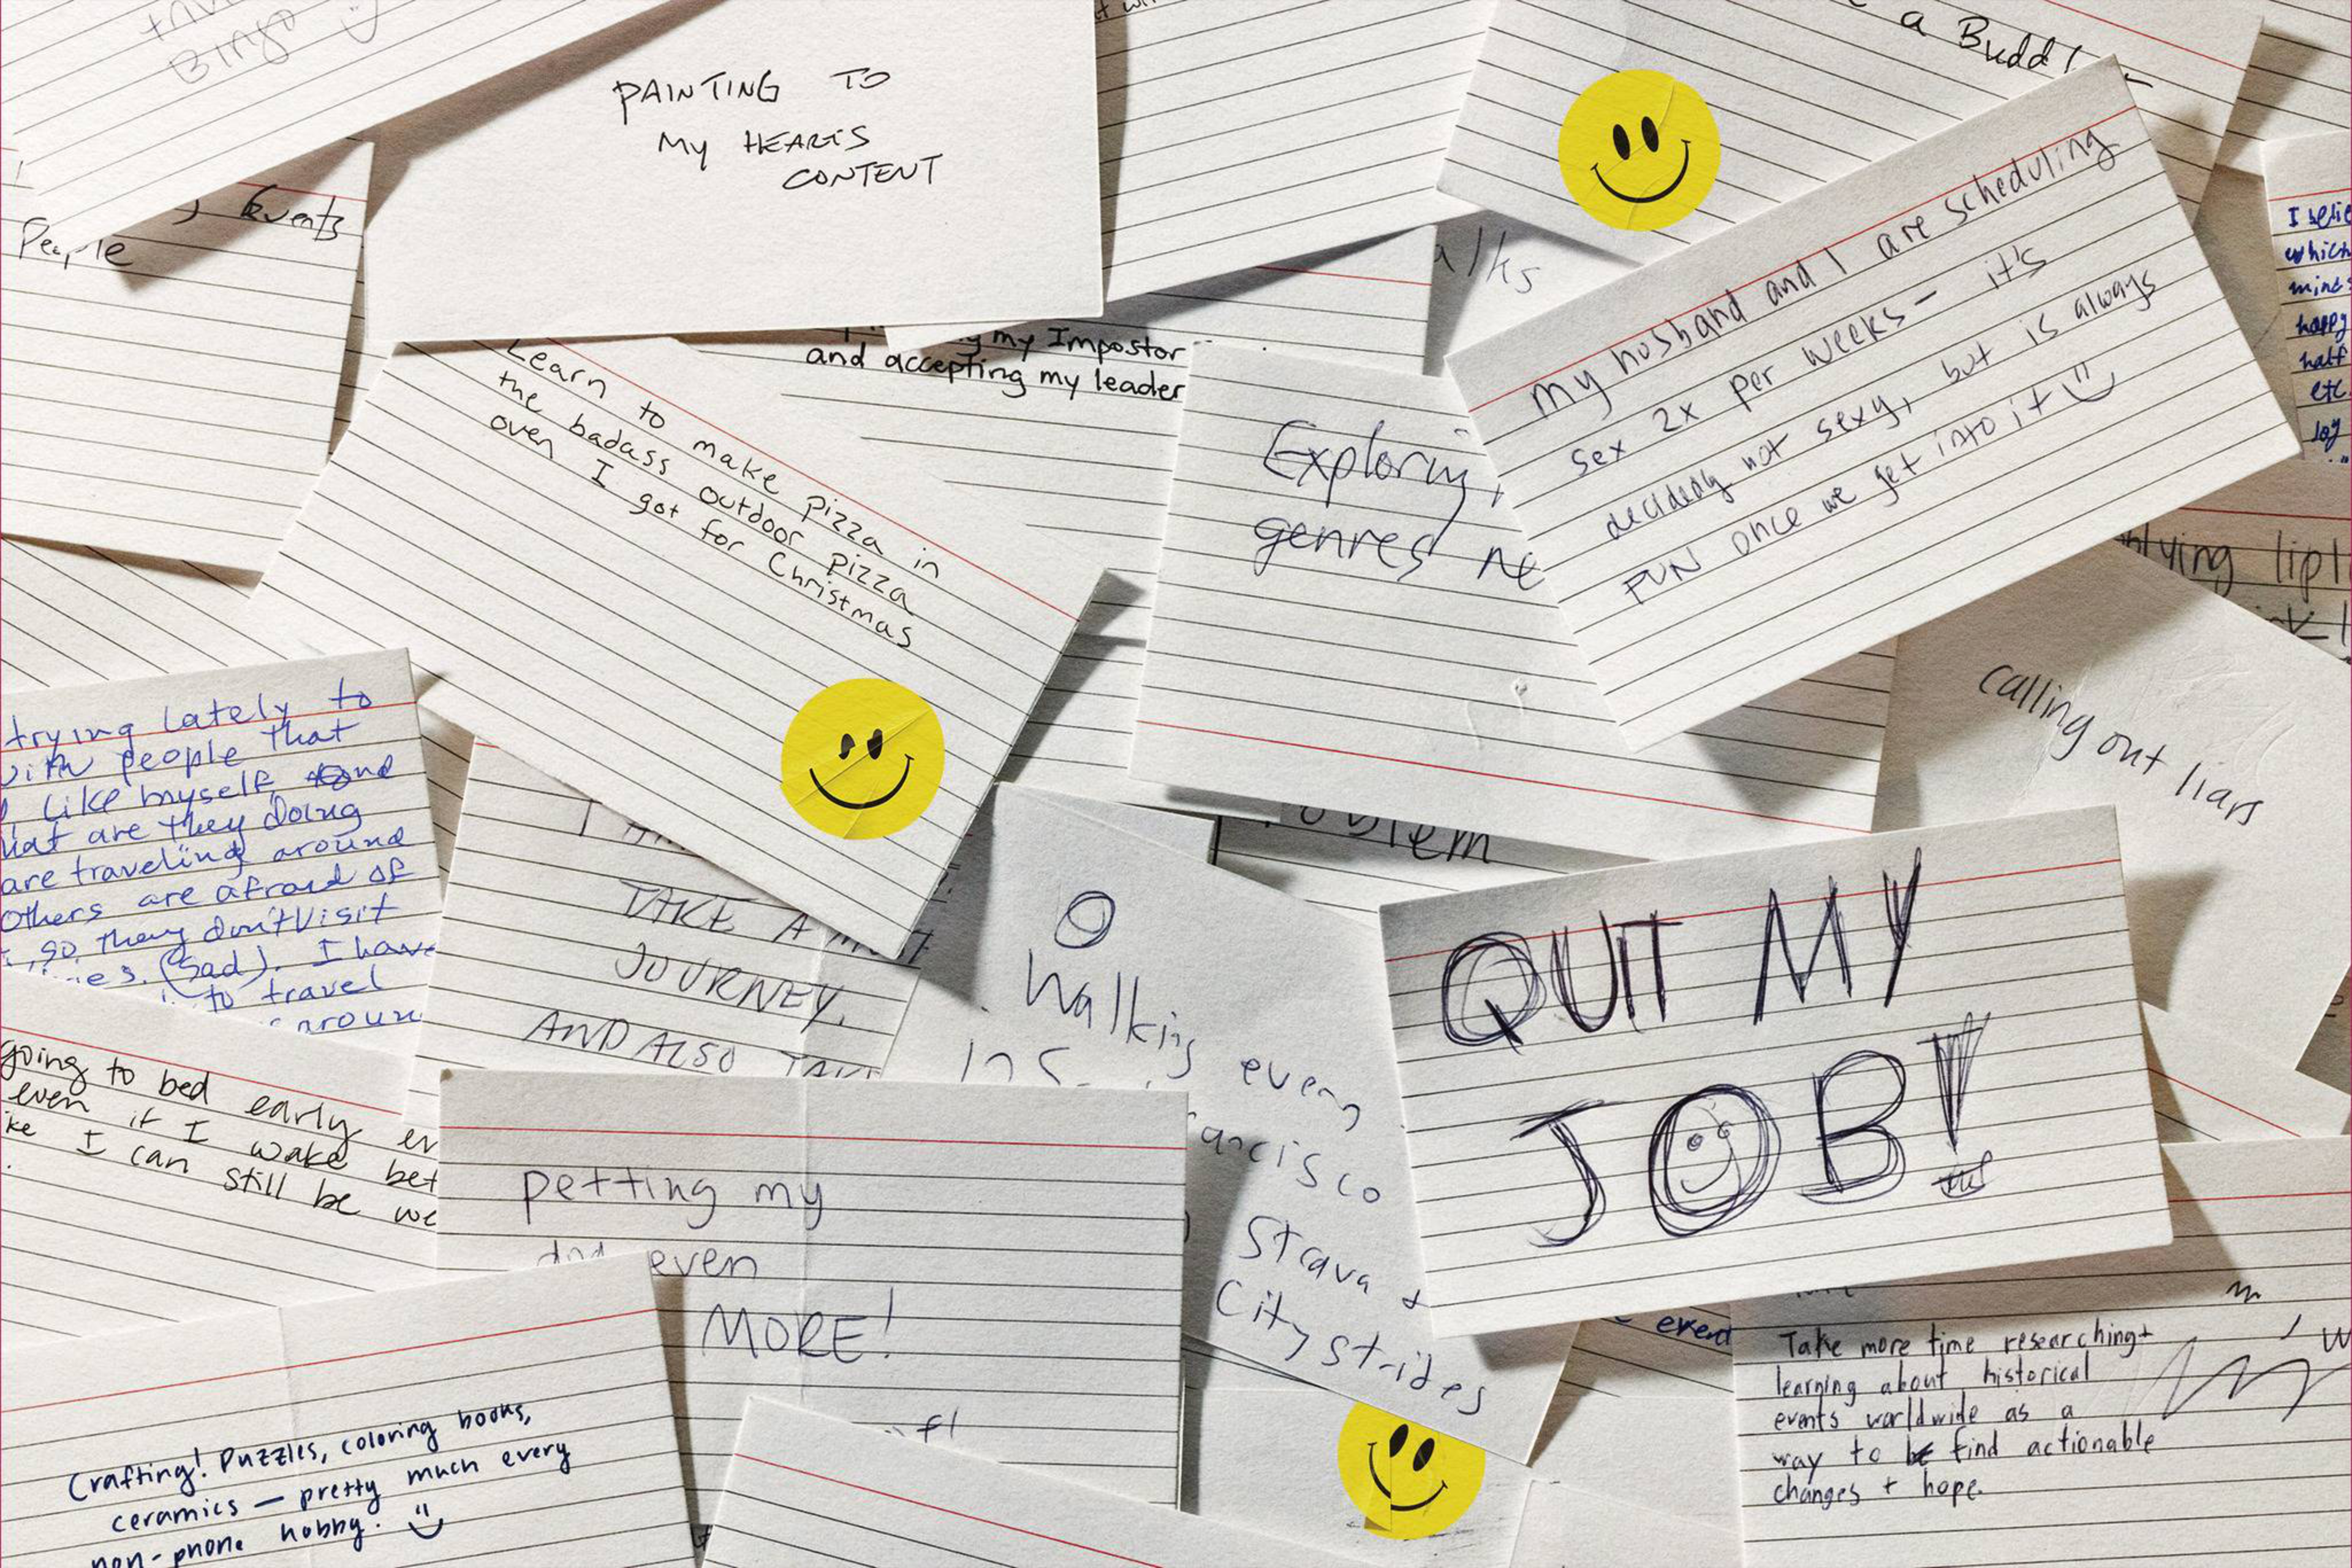 Bingo
PAINTING TO
MY HEARTS
CONTENT
a Budd
Events
People
my Impostor
and accepting my leader
Learn to make pizza in
the badass outdoor pizza
oven I got for Christmas
Exploring
genres
my husband and I are scheduling
sex 2x per weeks – it's
decidedly not sexy, but is always
FUN once we get into it
which
happy
half
etc
joy
calling out liars
trying lately to
with people that
like myself, and
are they doing
are traveling around
Others are afraid of
so, they don't visit
(Sad). I have
to travel
TAKE A
JOURNEY.
AND ALSO
Walking every
in S
ancisco
Strava +
City strides
QUIT MY
JOB!
going to bed early
even if I wake
I can still be
petting my
even
MORE!
Crafting! Puzzles, coloring books,
ceramics – pretty much every
non-phone hobby.
event
Take more time researching +
learning about historical
events worldwide as a
way to find actionable
changes + hope.